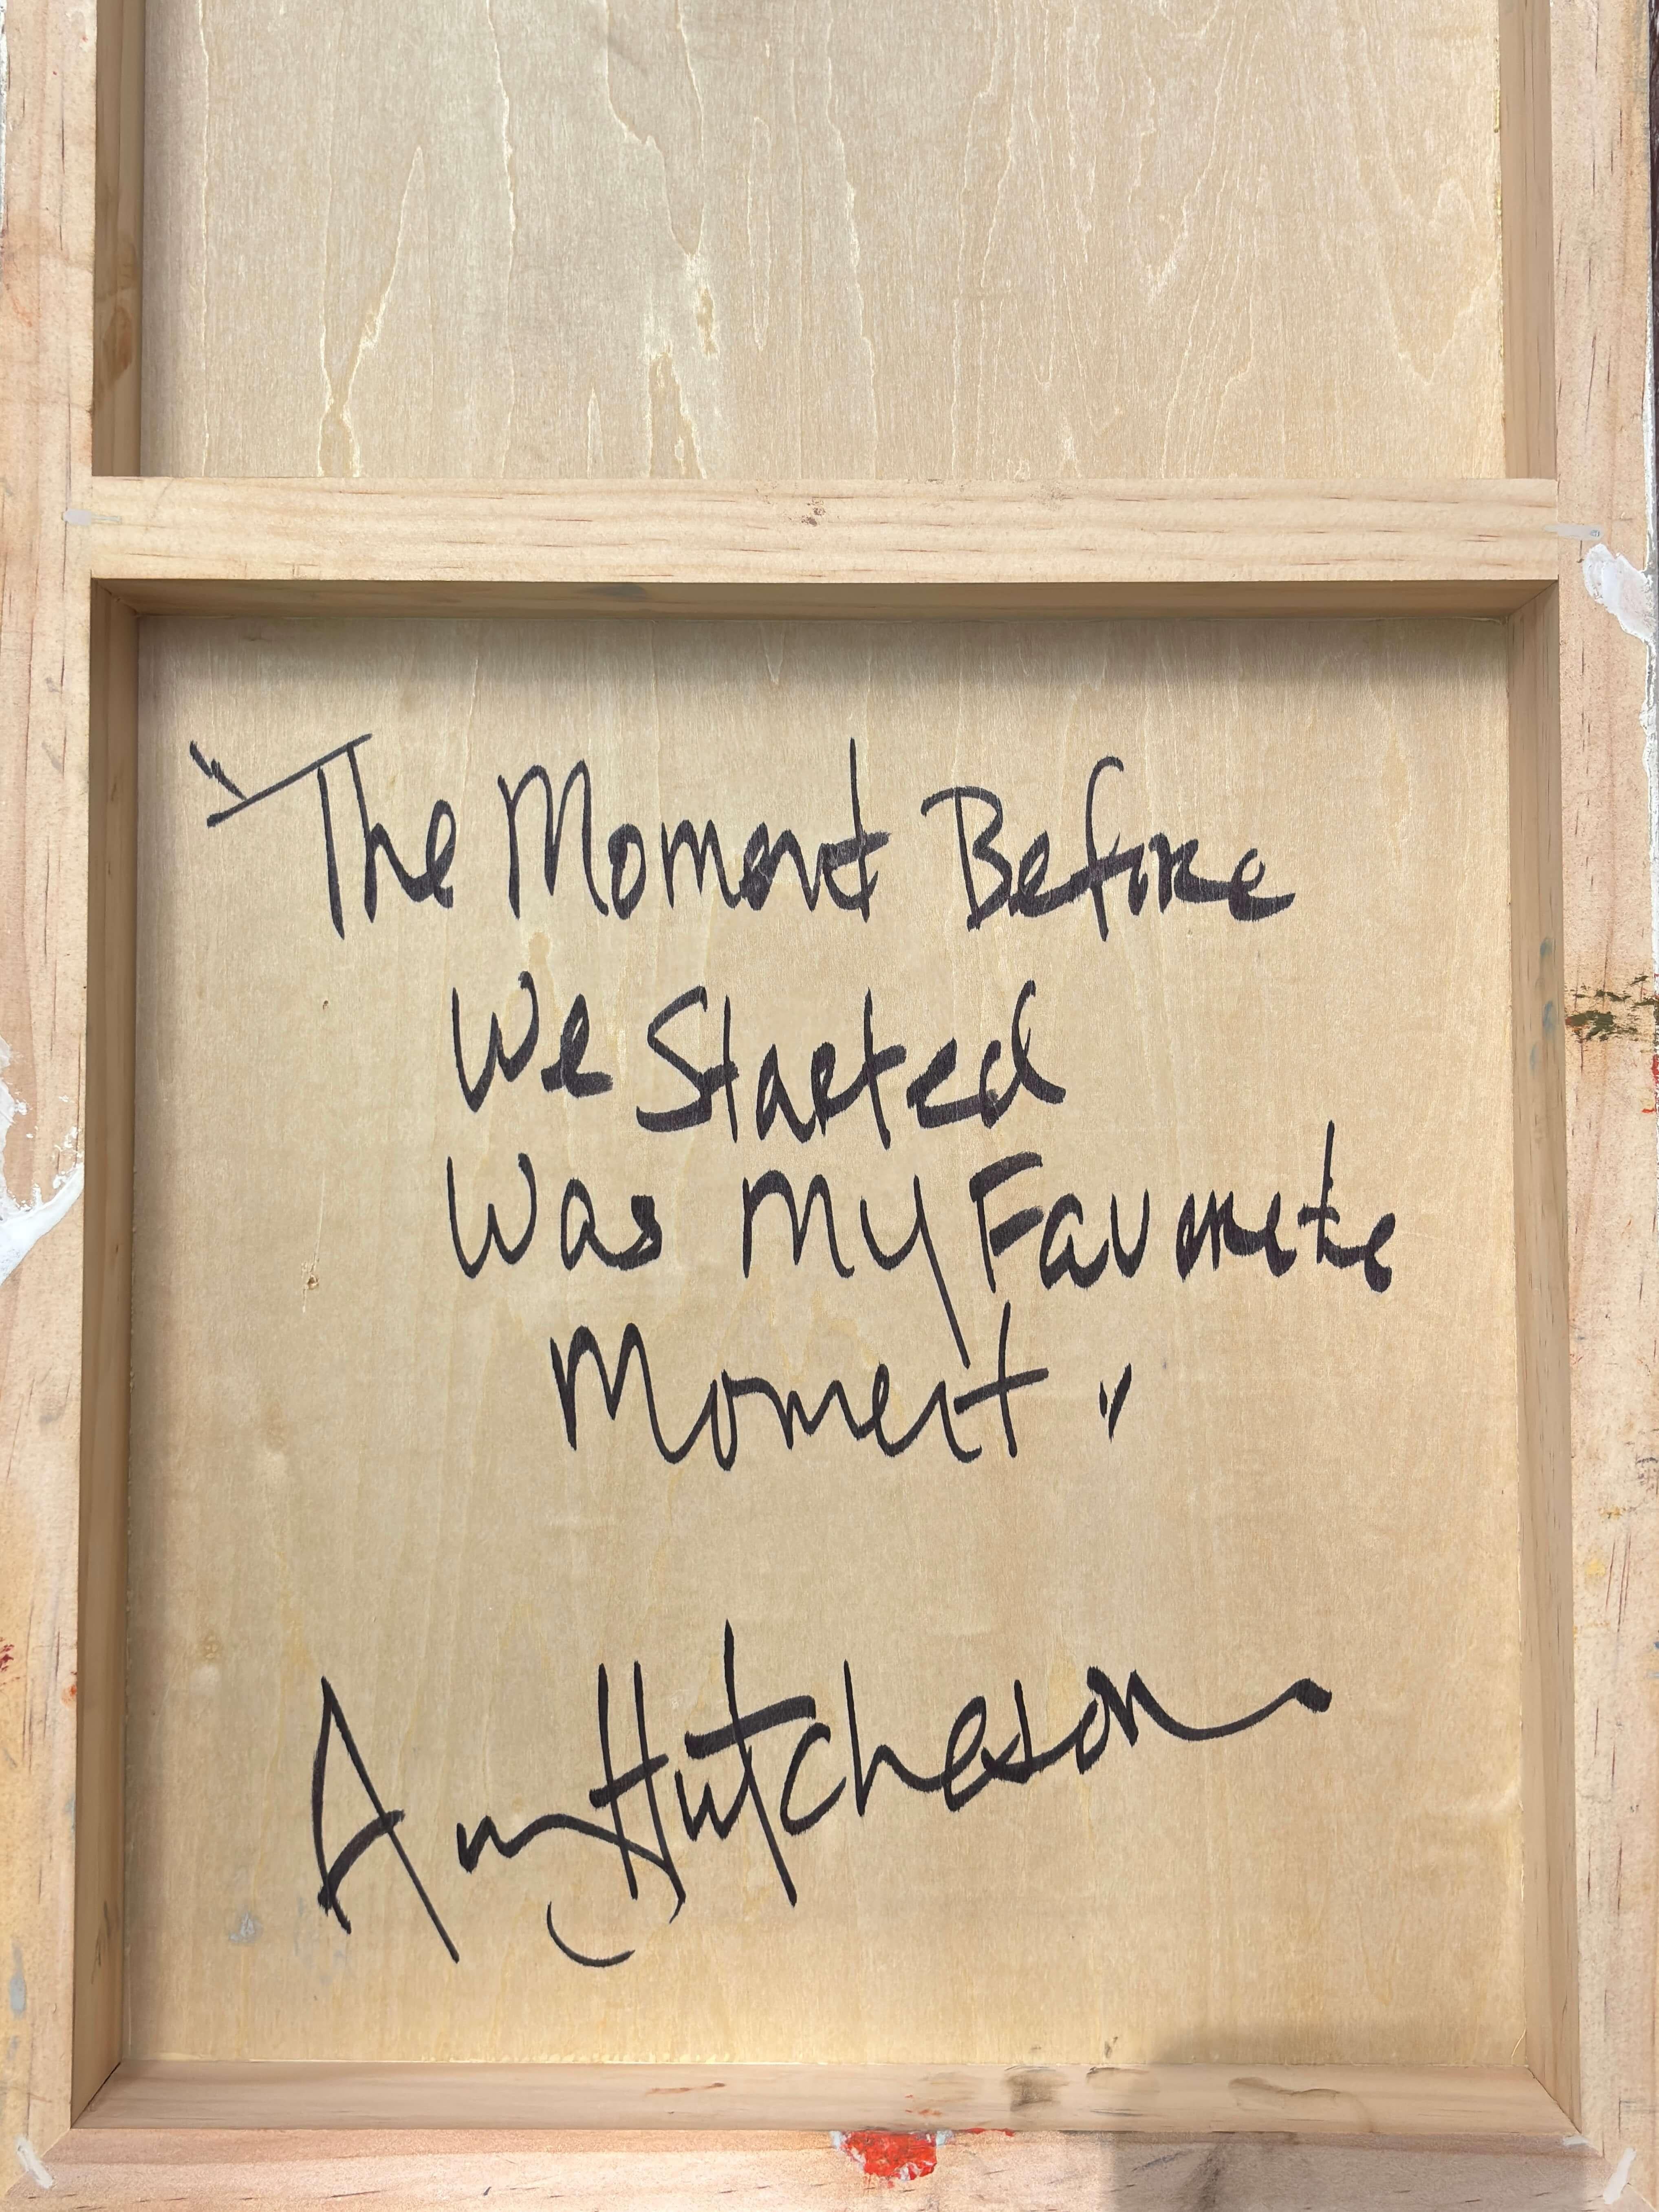 "The Moment Before
We Started
Was My Favorite
Moment"
Amy Hutcheson